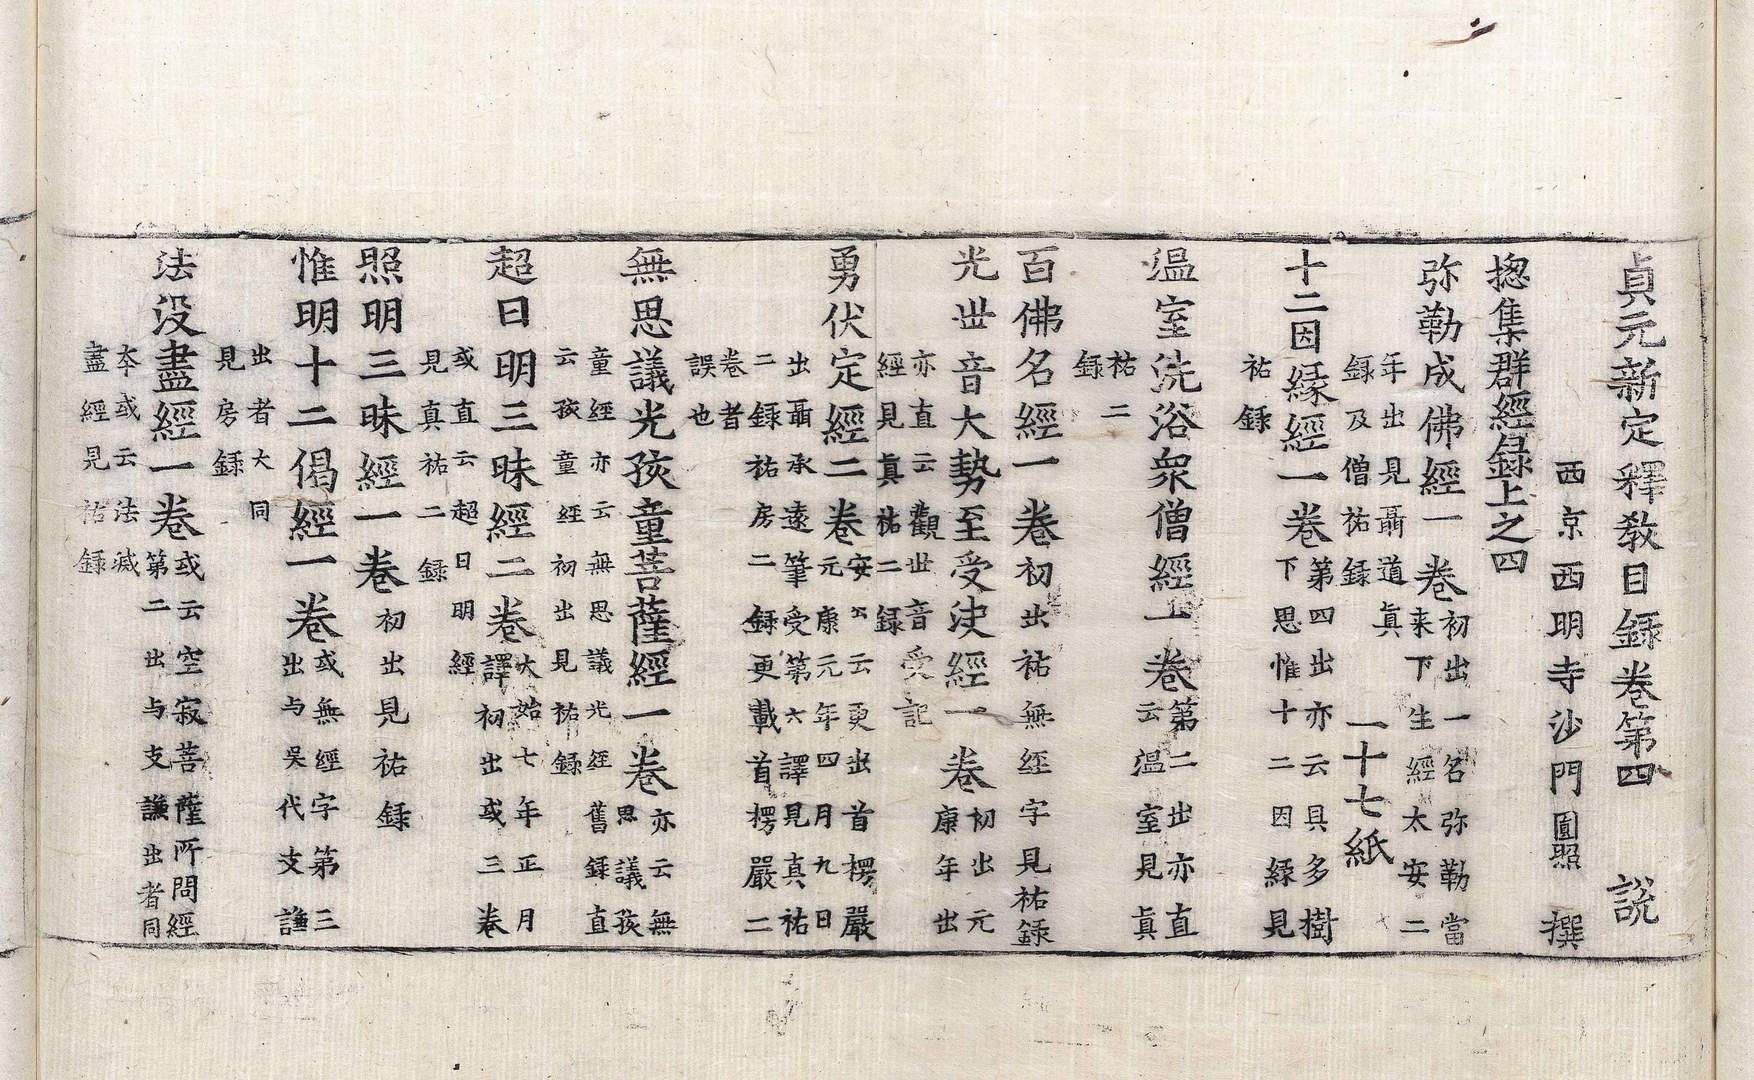 貞元新定釋教目録卷第四　說
西京西明寺沙門圓照　撰
揔集群經録上之四
弥勒成佛經一卷初出一名弥勒當
来下生經太安二
年出見聶道真
録及僧祐録
一十七紙
十二因縁經一卷第四出亦云具多樹
下思惟十二因縁見
祐録
温室洗浴衆僧經一卷第二出亦直
云温室見真
祐二
録
百佛名經一卷初出祐無經字見祐録
光世音大勢至受決經一卷初出元
康年出
亦直云觀世音受記
經見真祐二録
勇伏定經二卷安公云更出首楞嚴
元康元年四月九日
出聶承遠筆受第六譯見真祐
二録祐房二録更載首楞嚴二
卷者
誤也
無思議光孩童菩薩經一卷亦云無
思議孩
童經亦云無思議光經舊録直
云孩童經初出見祐録
超日明三昧經二卷大始七年正月
譯初出或三卷
或直云超日明經
見真祐二録
照明三昧經一卷初出見祐録
惟明十二偈經一卷或無經字第三
出与吴代支謙
出者大同
見房録
法没盡經一卷或云空寂菩薩所問經
第二出与支謙出者同
本或云法滅
盡經見祐録